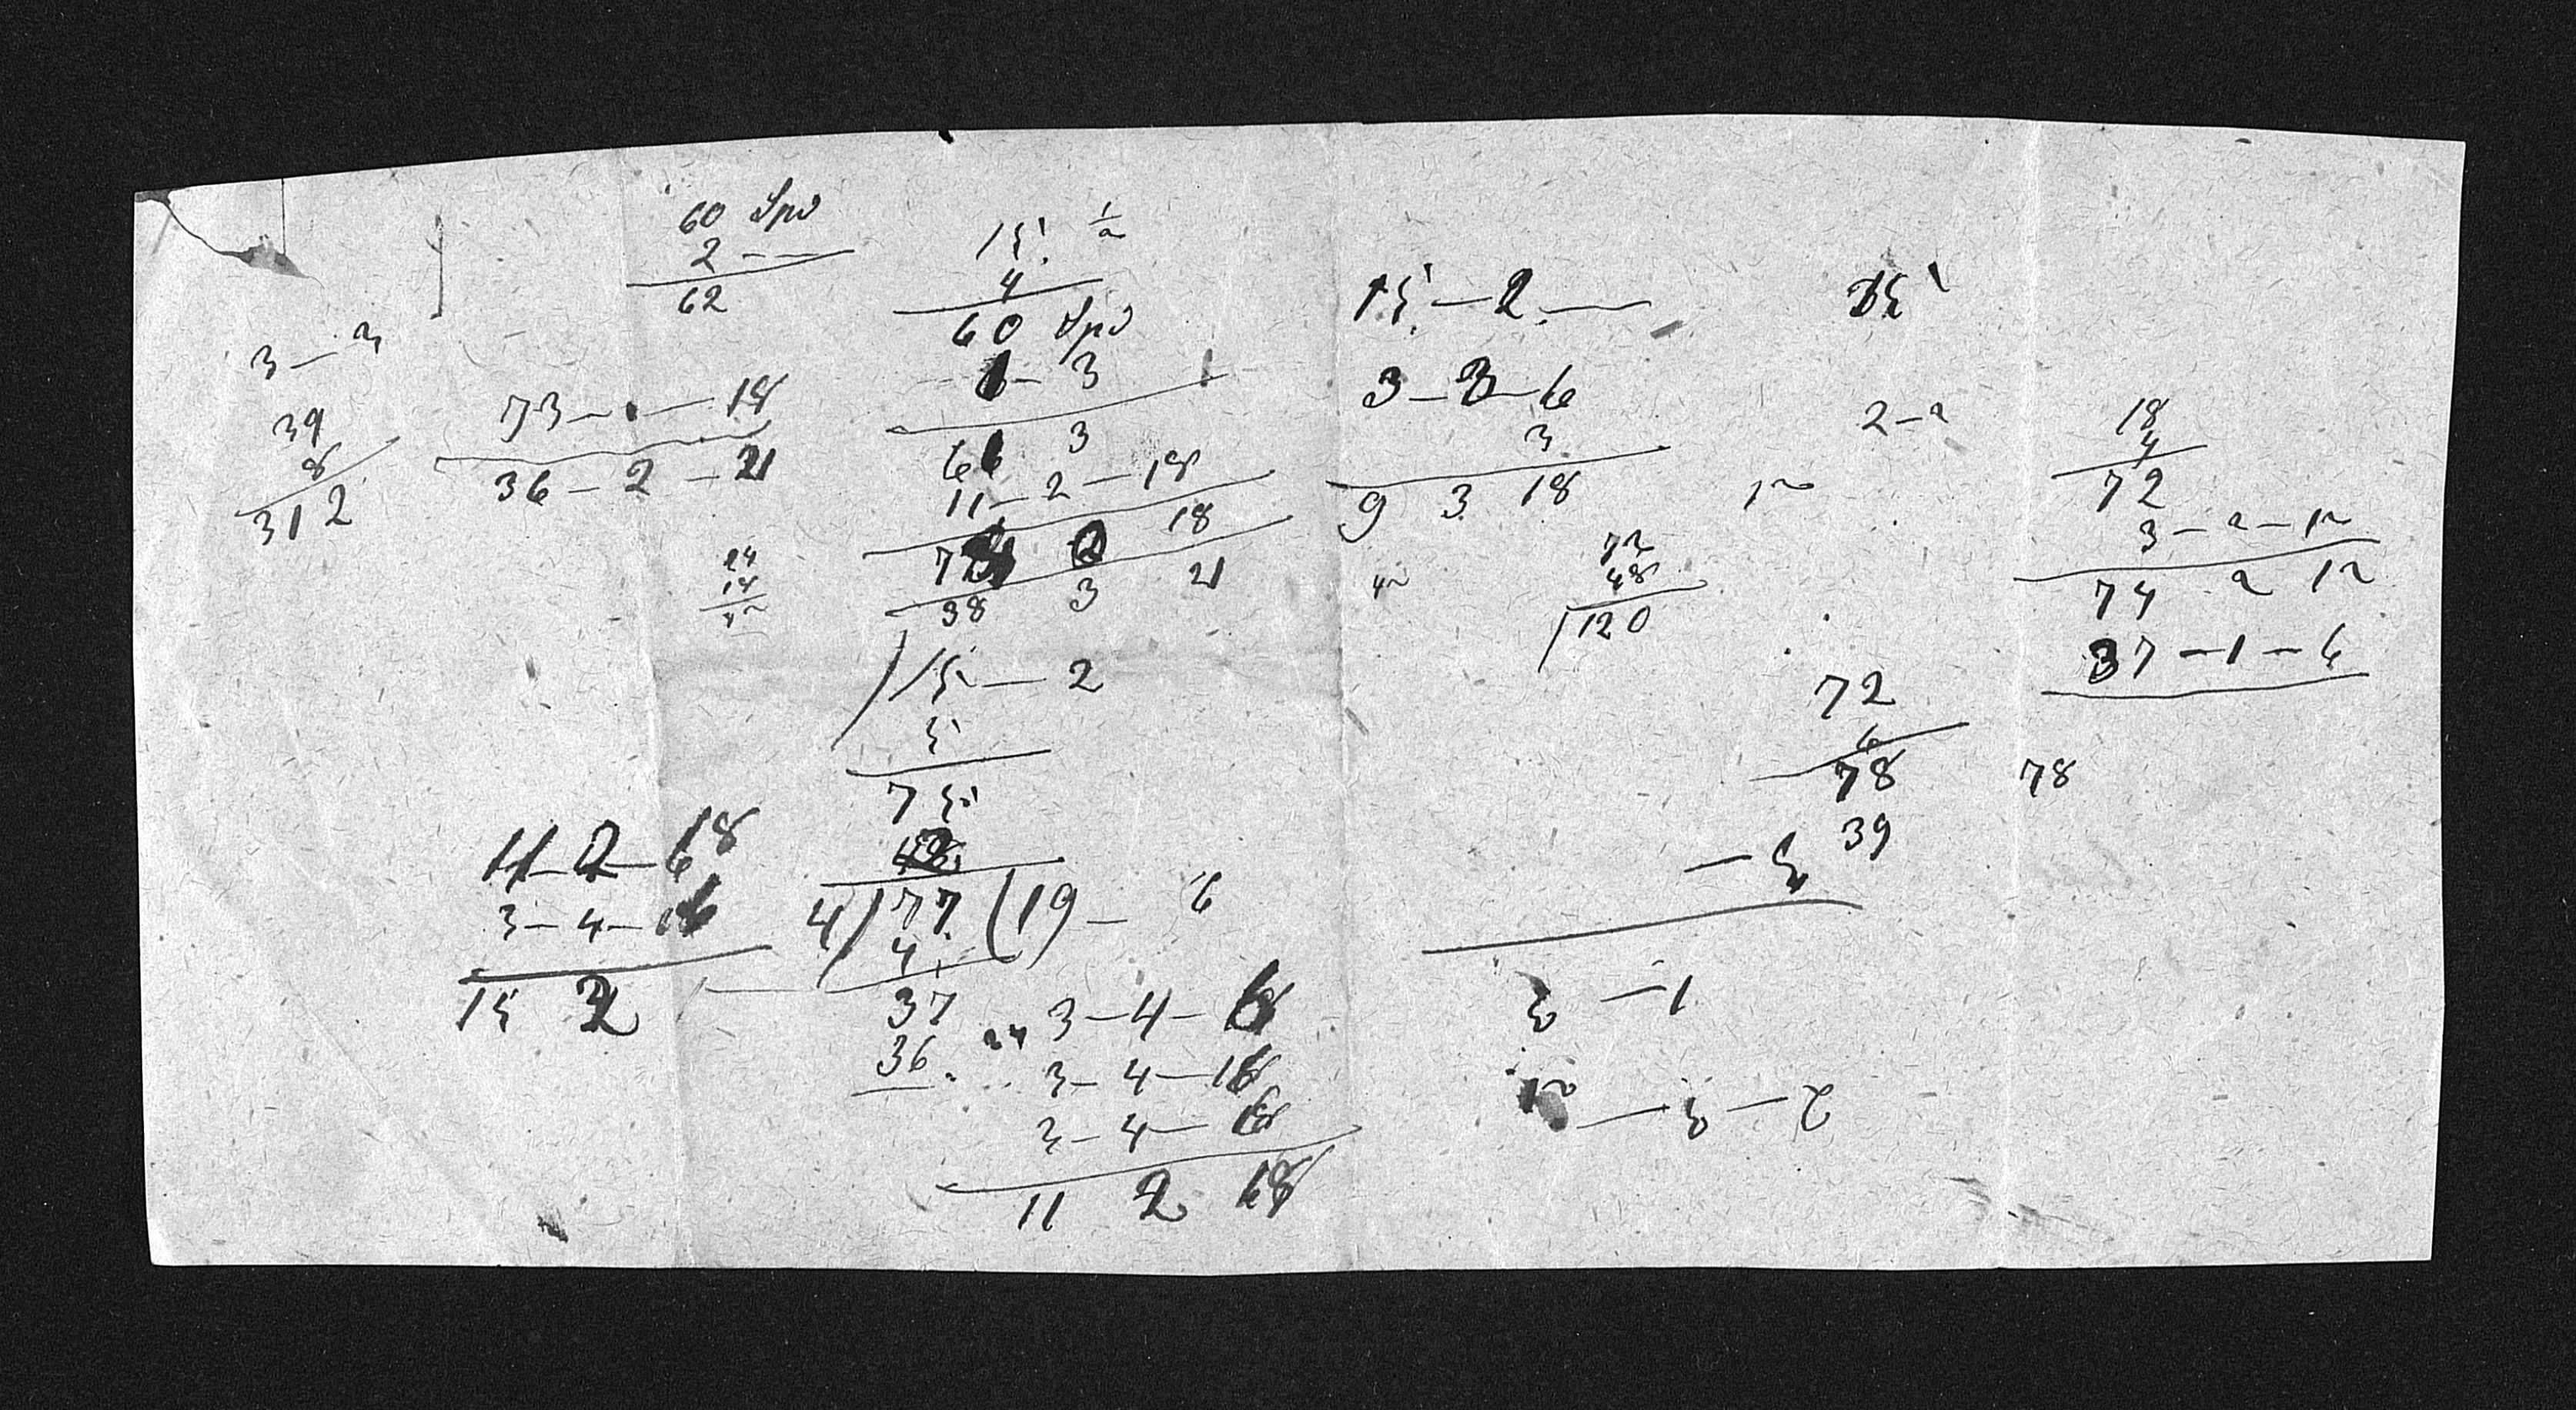 60 Spd
2 - -
62
15 1/2
4
60 Spd
1 - 3
61 3
11 - 2 - 18
73 0 18
38 3 21
15 - 2
5
75
4 ) 77 ( 19 - 6
4
37
36
3 - 4 -
3 - 4 - 16
3 - 4 -
11 2 18
3 - 3
39
8
312
73 - - 18
36 - 2 - 21
24
14
11 - 2 - 18
3 - 4 -
15 2
15 - 2 -
3 - 3 - 6
3
9 3 18
72
48
120
15
2 - 2
12
72
6
78
39
78
18
4
72
3 - 2 - 12
74 2 12
37 - 1 - 6
- 5
3 - 1
2 - 3 - 12